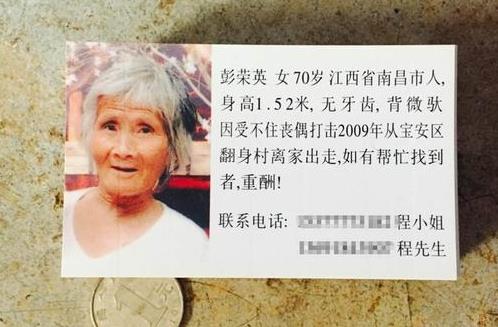 彭荣英 女70岁江西省南昌市人,
身高1.52米, 无牙齿, 背微驮
因受不住丧偶打击2009年从宝安区
翻身村离家出走,如有帮忙找到
者,重酬!
联系电话: 程小姐
程先生